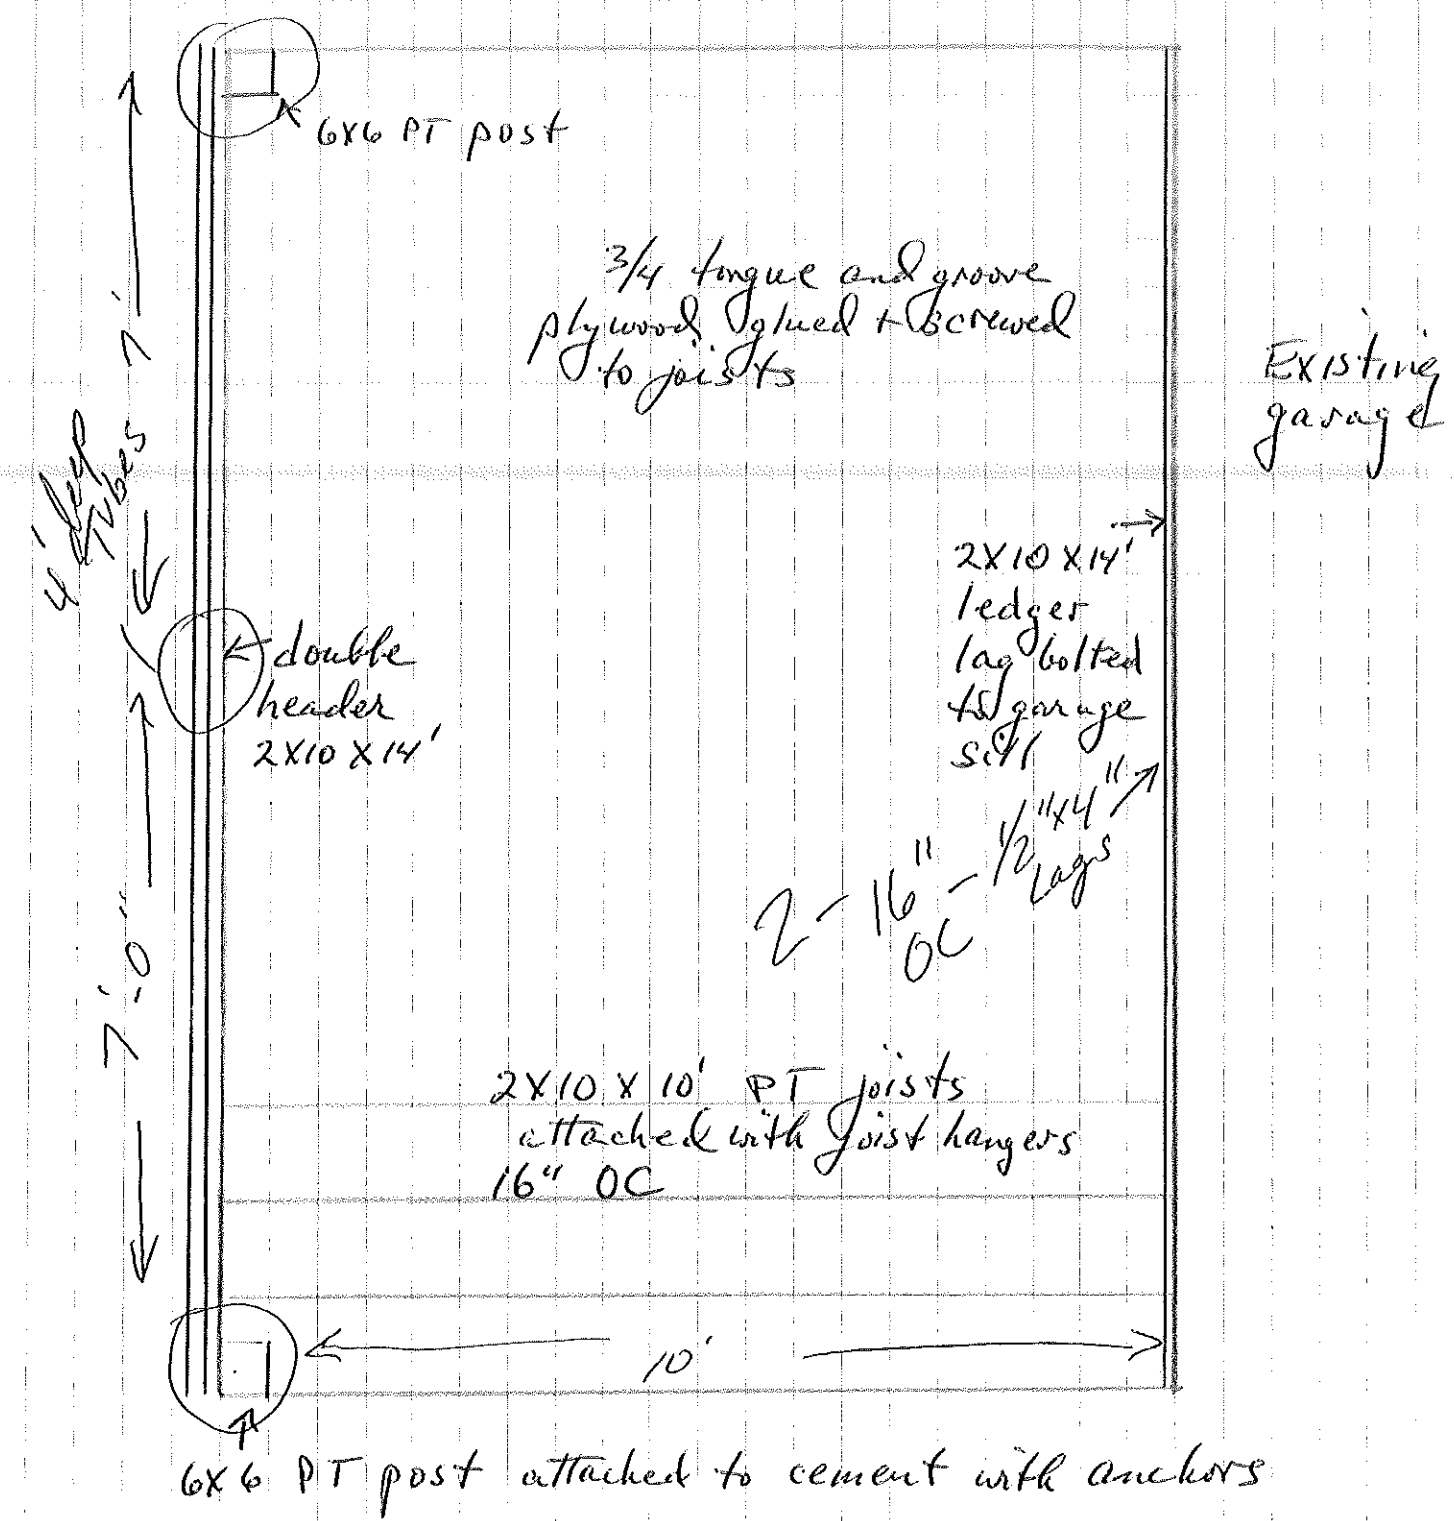 6X6 PT post
3/4 tongue and groove
plywood glued + screwed
to joists
Existing
garage
7'
4' deep
Tubes
double
header
2X10 X14'
2X10 X14'
ledger
lag bolted
to garage
sill
2 - 16" - 1/2"X4"
OC lags
7'-0"
2X10 X 10' PT joists
attached with joist hangers
16" OC
10'
6X6 PT post attached to cement with anchors